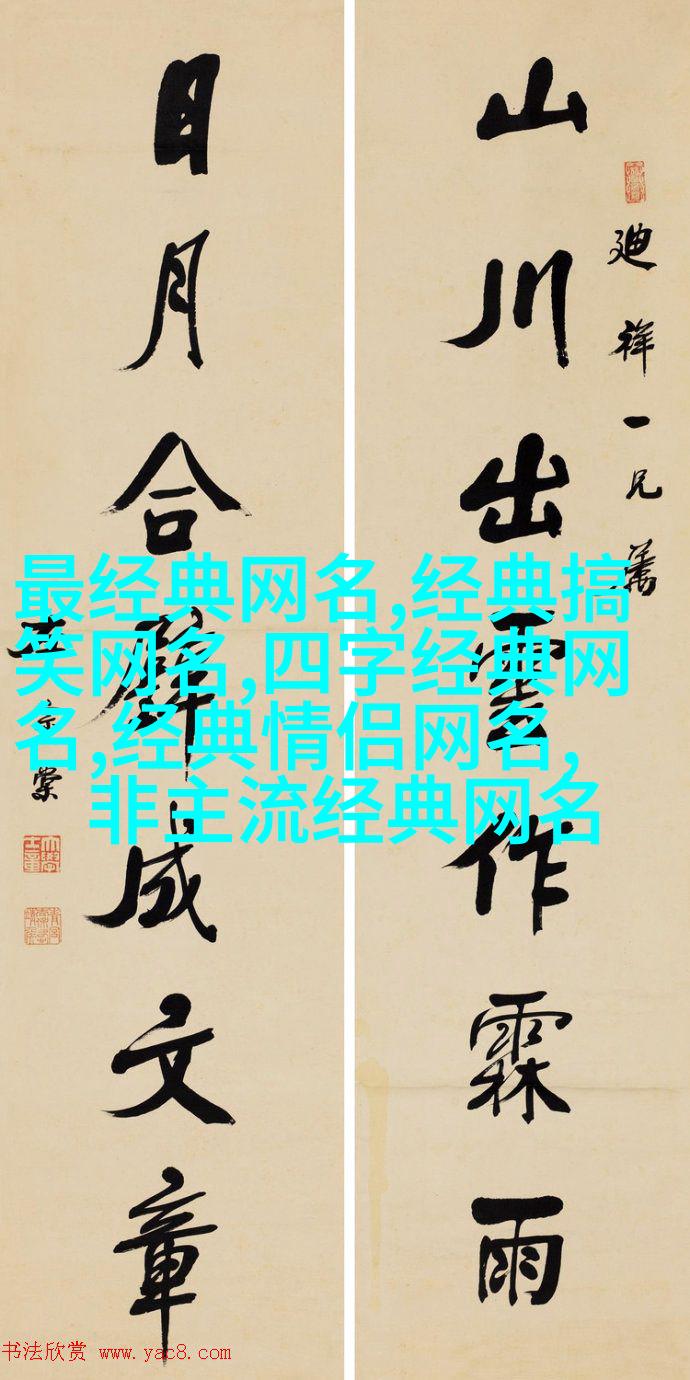 山川出雲作霖雨
廸祥一兄屬
日月合璧成文章
最经典网名,经典搞
笑网名,四字经典网
名,经典情侣网名,
非主流经典网名
书法欣赏 www.yac8.com